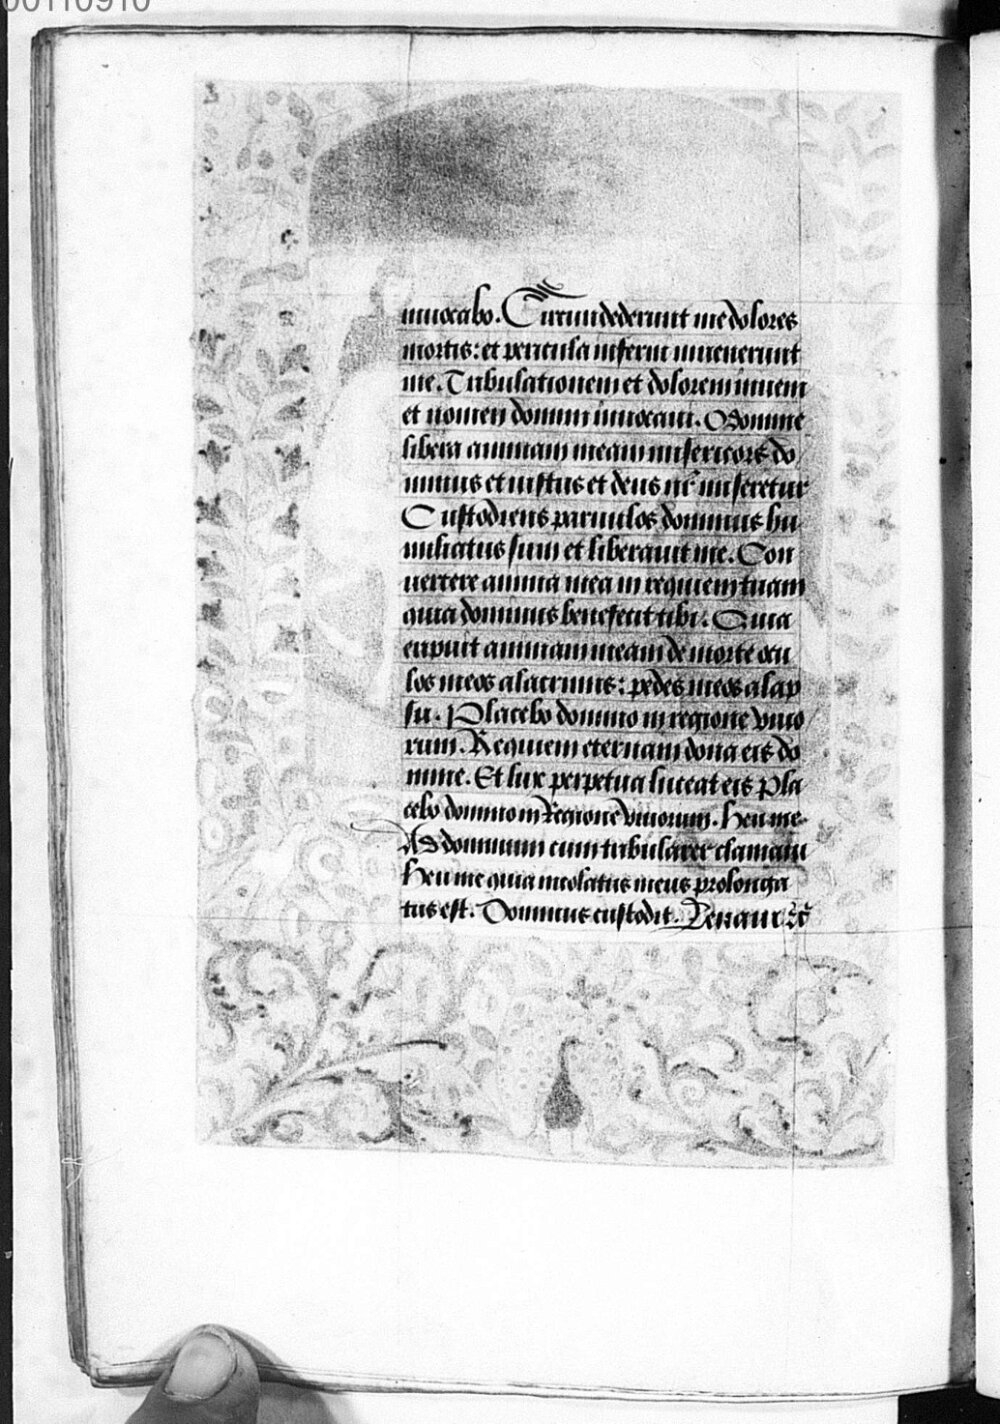 00110910
inuocabo. Circundederunt me dolores
mortis: et pericula inferni inuenerunt
me. Tribulationem et dolorem inueni
et nomen domini inuocaui. O domine
libera animam meam misericors do
minus et iustus et deus nr̄ miseretur
Custodiens paruulos dominus hu
miliatus sum et liberauit me. Con
uertere anima mea in requiem tuam
quia dominus benefecit tibi. Quia
eripuit animam meam de morte ocu
los meos a lacrimis: pedes meos a lap
su. Placebo domino in regione viuo
rum. Requiem eternam dona eis do
mine. Et lux perpetua luceat eis Pla
cebo domino in Regione viuorum. Heu me.
Ad dominum cum tribularer clamaui
Heu me quia incolatus meus prolonga
tus est. Dominus custodit.